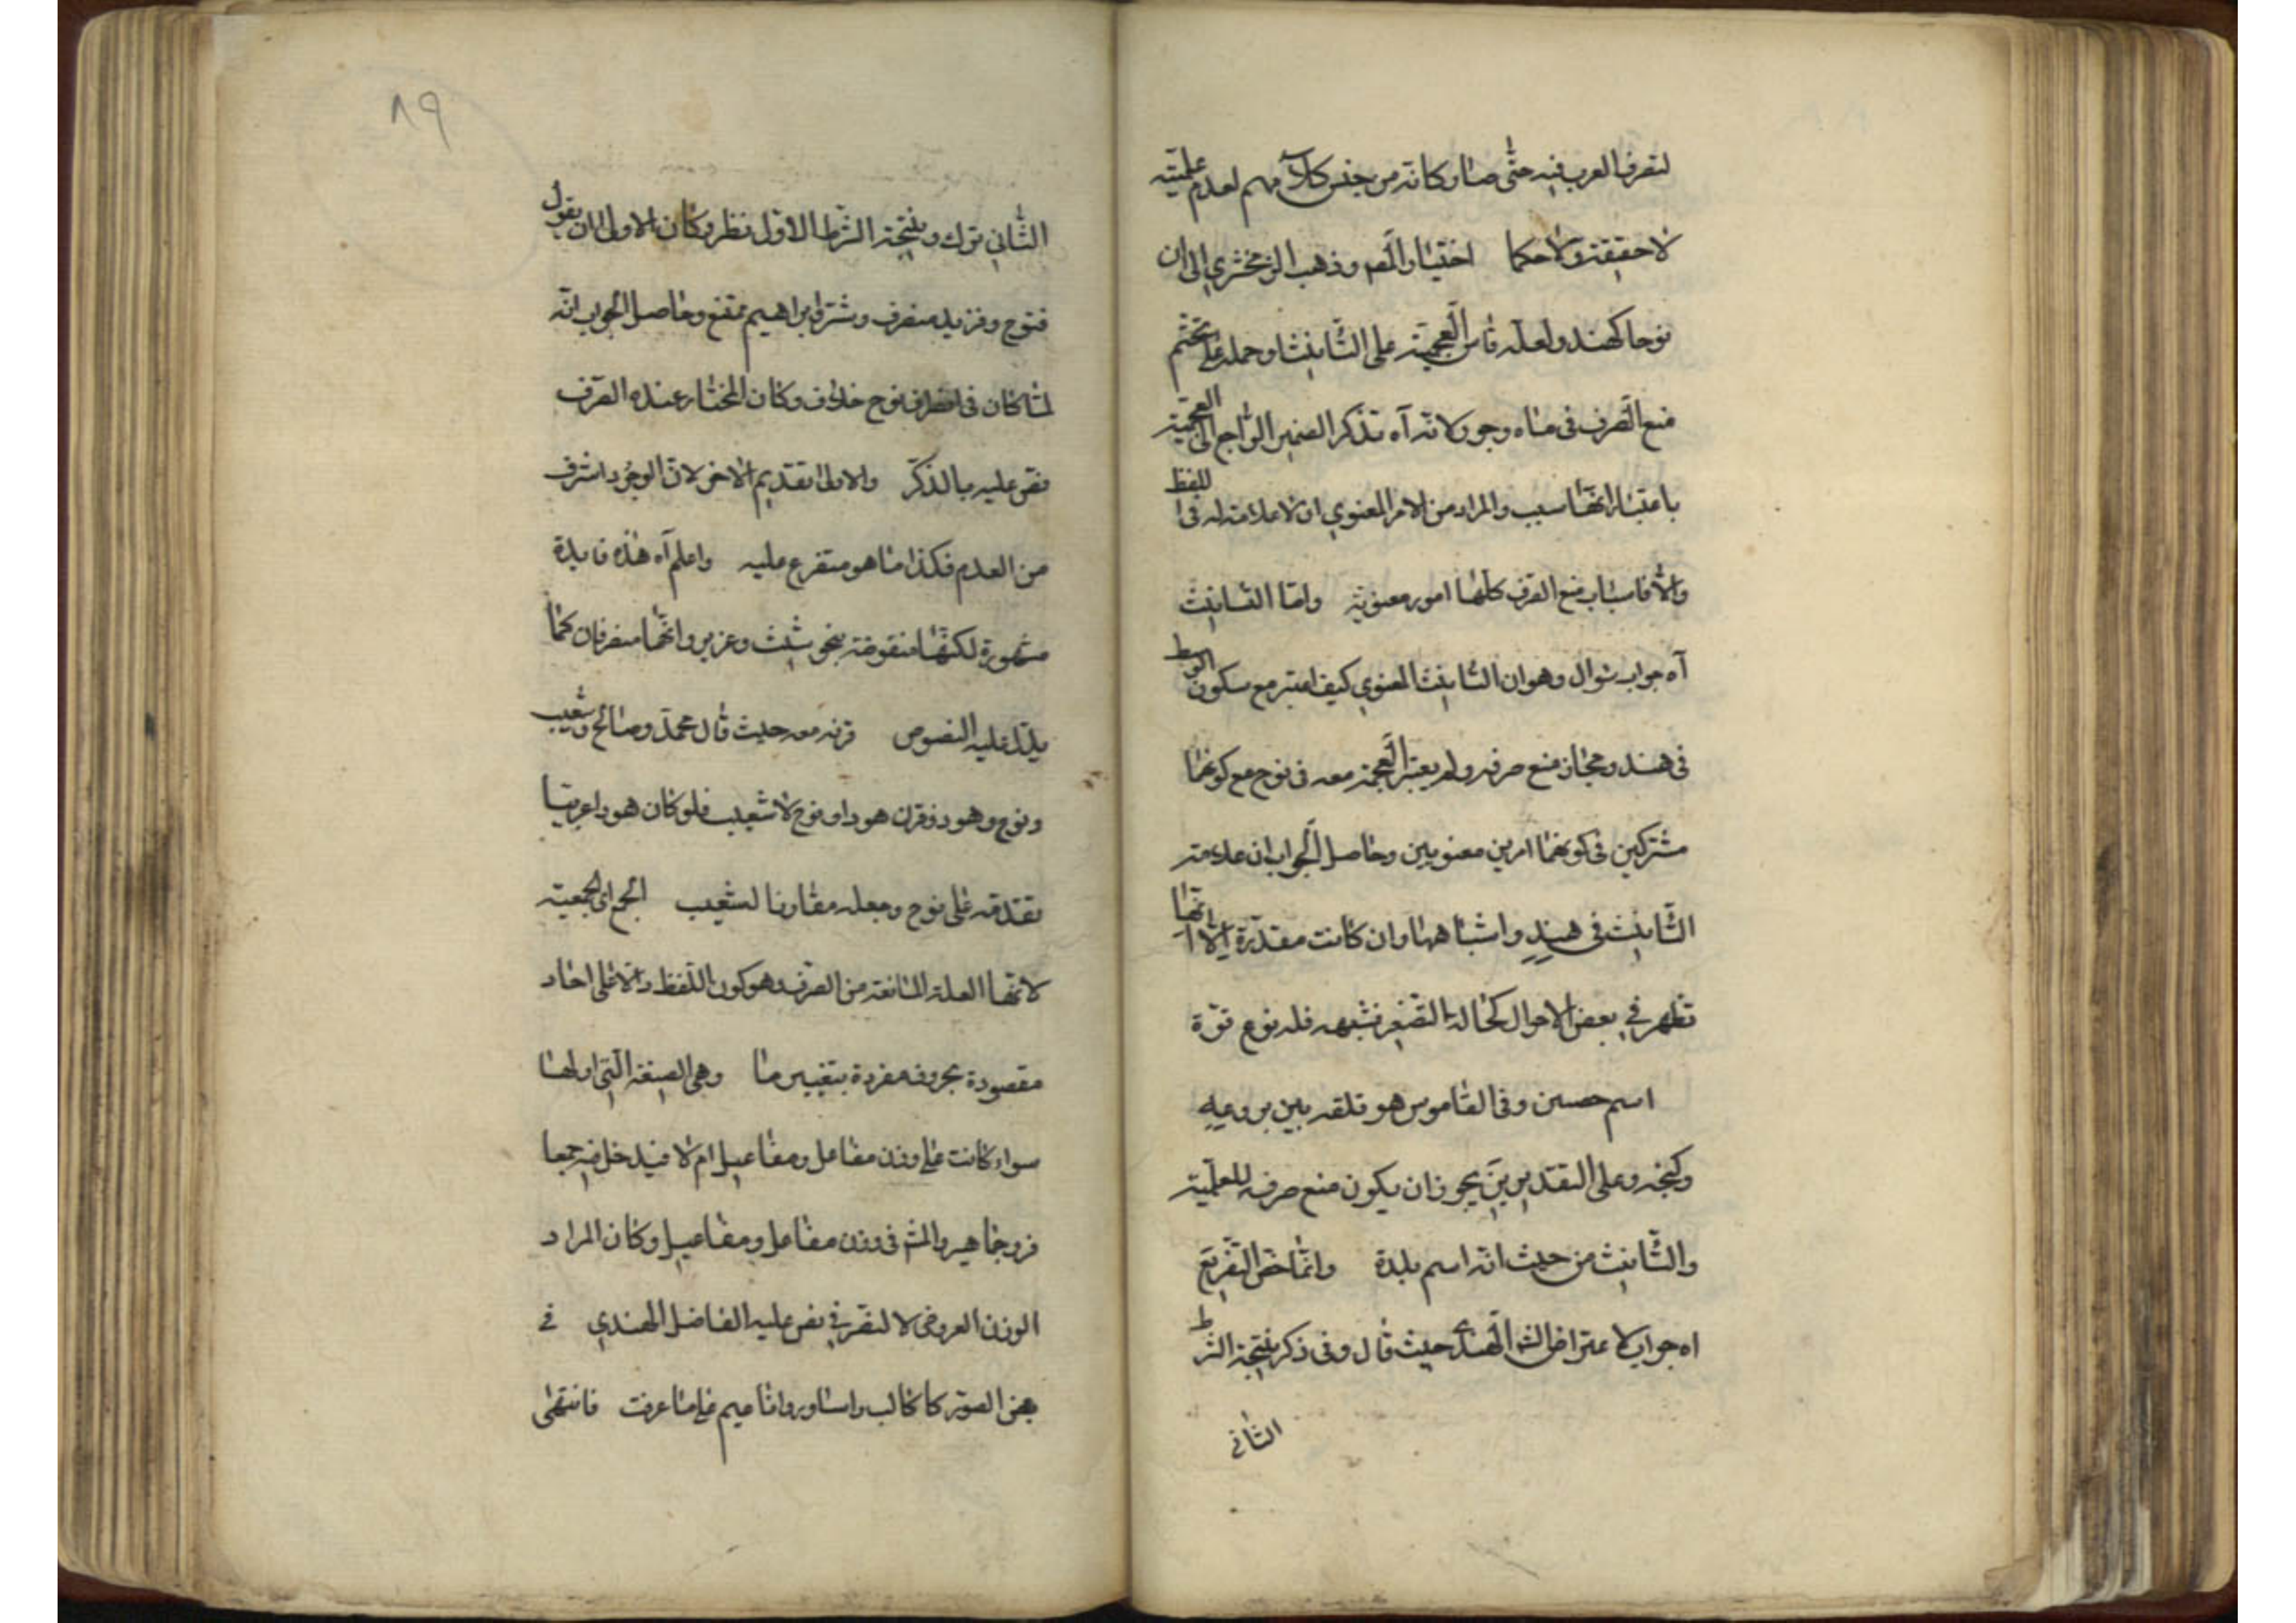 لتصرف العرب فيه حتى صار كانه من جنس كلامهم لعدم علميته
لا حقيقة ولا حكما اختيار المصـ وذهب الزمخشري الى ان
نوحا كهند ولعله قاس العجمية على التانيث وحمله على تحتم
منع الصرف في ماه وجور لانه آه تذكر الضمير الراجع الى العجمية
باعتبار انها سبب والمراد من الامر المعنوي ان لا علامة له في اللفظ
والا فاسباب منع الصرف كلها امور معنوية واما التانيث
آه جواب سؤال وهو ان التانيث المعنوي كيف اعتبر مع سكون الوسط
في هند وجاز منع صرفه ولم يعتبر العجمة معه في نوح مع كونهما
مشتركين في كونهما امرين معنويين وحاصل الجواب ان علامة
التانيث في هند واشباهها وان كانت مقدرة الا انها
تظهر في بعض الاحوال كحالة التصغير فله نوع قوة
اسم حصين وفي القاموس هو قلعة بين بروعه
وكنجه وعلى التقديرين يجوز ان يكون منع صرفه للعلمية
والتانيث من حيث انه اسم بلدة وانما خص التفريع
اه جواب لاعتراض الشـ الهندي حيث قال وفي ذكر نتيجة الشرط
الثاني
٨٩
الثاني ترك ونتيجة الشرط الاول نظر وكان الاولى ان يقول
فنوح وفرزيد منصرف وشتر وابراهيم ممتنع وحاصل الجواب انه
لما كان في انصراف نوح خلاف وكان المختار عنده الصرف
نص عليه بالذكر والاولى تقديم الاخر لان الوجود اشرف
من العدم فكذا ما هو متفرع عليه واعلم آه هذه فايدة
مشهورة لكنها منقوضة بنحو شيث وعزير وانهما منصرفان كما
يدل عليه النصوص قرنه معه حيث قال محمد وصالح وشعيب
ونوح وهود فقرن هودا ونوح لا شعيب فلو كان هود اعربيا
تقدمه على نوح وجعله مقارنا لشعيب الجمع اى الجمعية
لانها العلة المانعة من الصرف وهو كون اللفظ دالا على احاد
مقصودة بحروف مفردة بتغيير ما وهي الصيغة التي اولها
سواء كانت على وزن مفاعل ومفاعيل ام لا فيدخل فيه جمعا
في وزن مفاعل ومفاعيل وكان المراد
الوزن العروضي لا التصريفي نص عليه الفاضل الهندي في
بعض الصور كاكالب واساور واناعيم على ما عرفت فانتهى